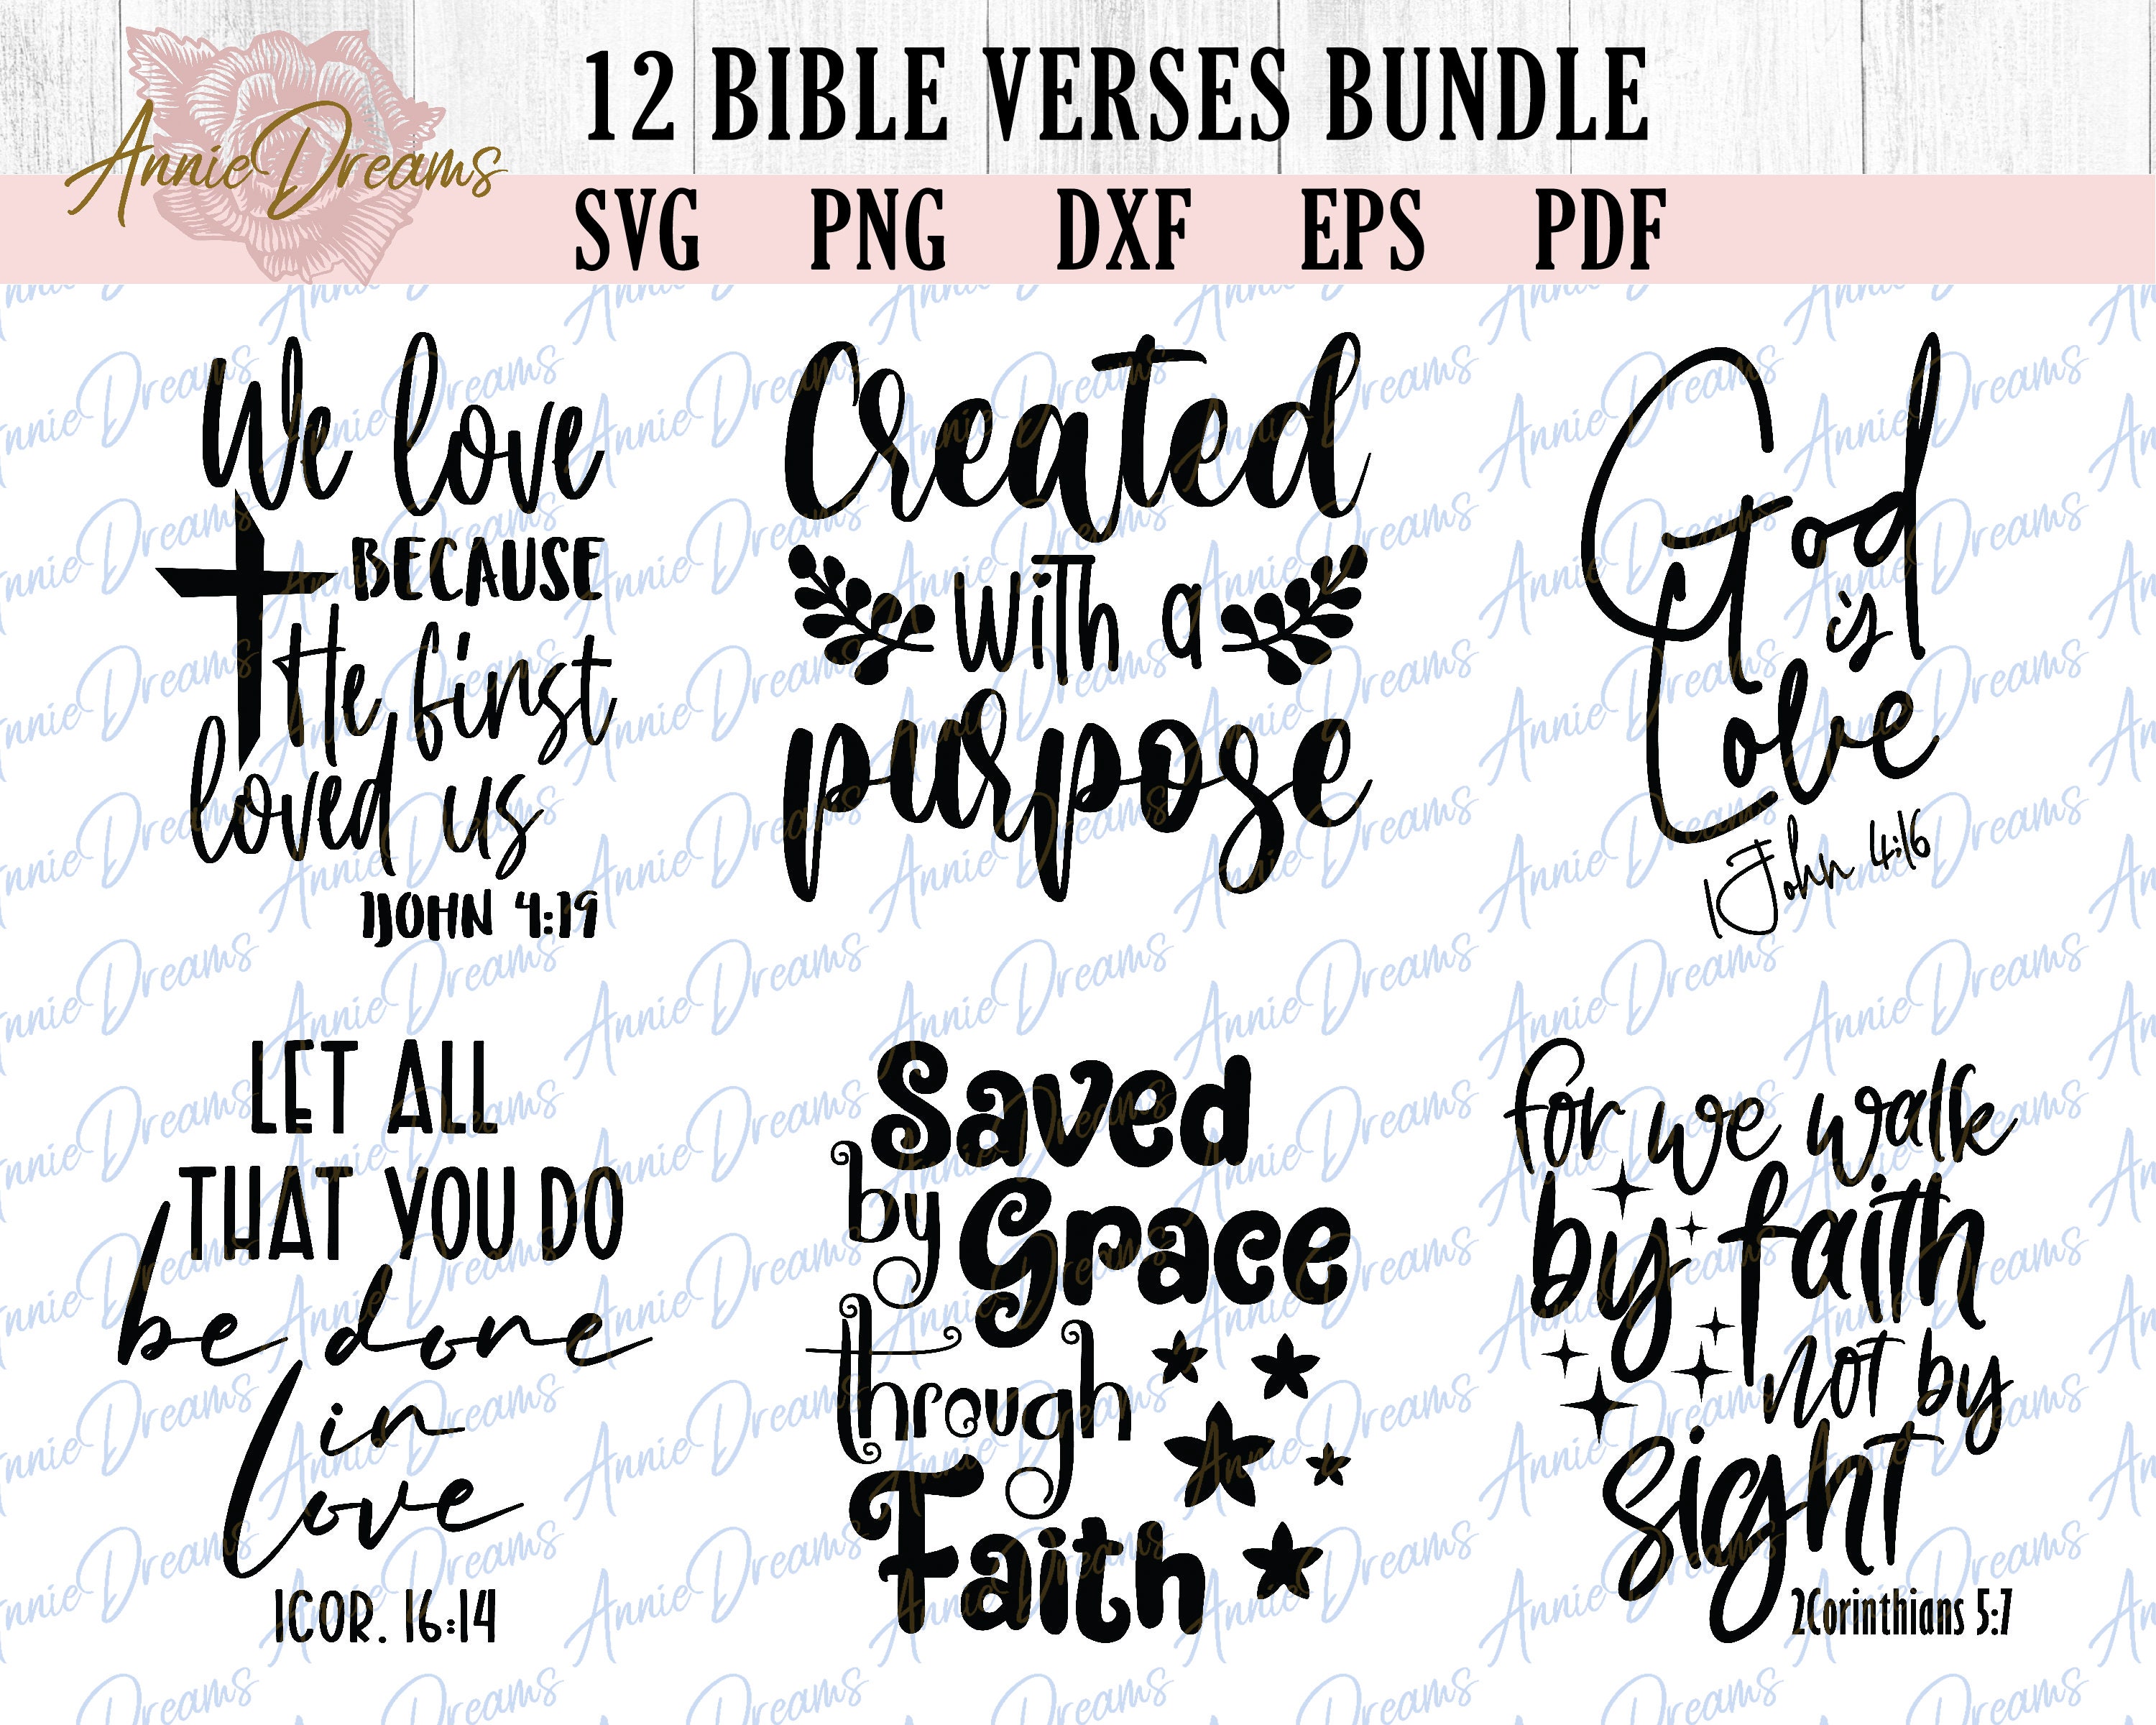 Annie Dreams
12 BIBLE VERSES BUNDLE
SVG PNG DXF EPS PDF
We love
BECAUSE
He first
loved us
1JOHN 4:19
Created
with a
purpose
God
is
Love
1John 4:16
LET ALL
THAT YOU DO
be done
in
love
1COR. 16:14
Saved
by Grace
through
Faith
for we walk
by faith
not by
sight
2Corinthians 5:7